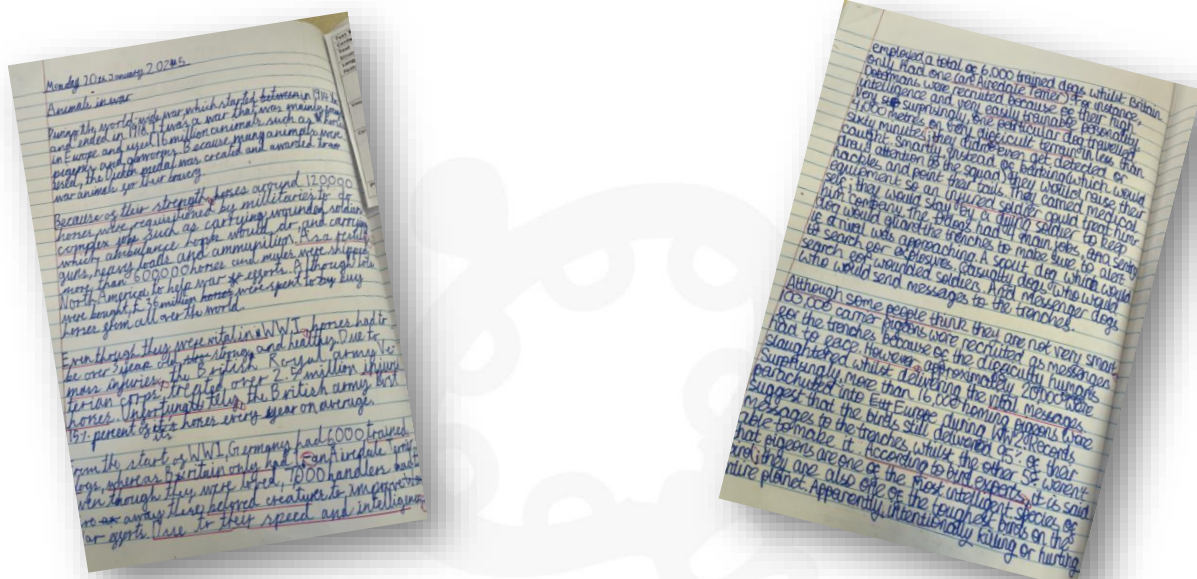 Monday 20th January 2025
Animals in war
During the world wide war, which started between in 1914
and ended in 1918. It was a war that was mainly
in Europe and used 16 million animals such as
pigeons and glowworms. Because many animals were
used, the Dickin medal was created and awarded
war animals for their bravery.
Because of their strength, horses around 120,000
horses were requisitioned by militaries to do
complex jobs such as carrying wounded soldiers
which ambulance would do and carrying
guns, heavy loads and ammunition. As a result,
more than 600,000 horses and mules were shipped
North America to help war efforts. Although
were bought, 36 million were spent to buy
horses from all over the world.
Even though they were vital in WWI, horses had to
be over 3 year old, strong and healthy. Due to
mass injuries, the British Royal army
corps, treated over 2.7 million
horses. Unfortunately, the British army
15% percent of it's horses every year on average.
From the start of WWI, Germany had 6000 trained
dogs, whereas Britain only had Airdale
even though they were loved, 7000 handlers
away these beloved creatures to
war efforts. Due to their speed and intelligence
employed a total of 6,000 trained dogs whilst Britain
only had one (an Airedale Terrier). For instance,
Dobermans were recruited because of their high
intelligence and very easily trainable personality.
surprisingly, one particular dog travelled
4,000 metres of very difficult terrain in less than
sixty minutes; they didn't even get detected or
caught. Smartly, instead of barking (which would
draw attention to the squad), they would raise their
hackles and point their tails. They carried medical
equipment so an injured soldier could treat
self; they would stay by a dying soldier to keep
him company. The dogs had 4 main jobs, a
dog would guard the trenches to make sure to alert
if a rival was approaching. A scout dog, which would
search for explosives. Casualty dogs, who would
search for wounded soldiers. And messenger dogs
who would send messages to the trenches.
Although some people think they are not very smart,
100,000 carrier pigeons were recruited as messengers
for the trenches because of the humans
had to face, however, approximately 20,000 were
slaughtered whilst delivering the vital messages.
Surprisingly more than 16,000 homing pigeons were
parachuted into Europe during WW2. Records
suggest that the birds still delivered 95% of their
messages to the trenches, whilst the other 5% weren't
able to make it. According to bird experts, it is said
that pigeons are one of the most intelligent species of
and they are also one of the toughest birds on the
entire planet. Apparently, intentionally killing or hurting